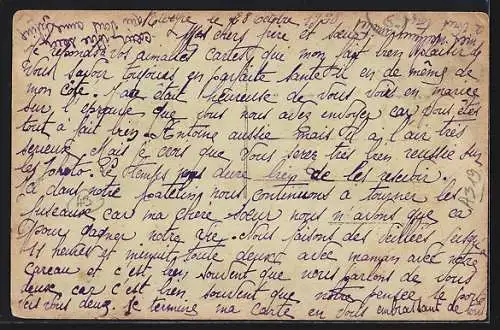 le 28 Octobre
Mes chers frère et soeur
Je repond a vos aimables cartes qui mon fait bien plaisir de
vous savoir toujours en parfaite santé il en de même de
mon coté. heureuse de vous voir en mariée
sur l'épreuve que vous nous avez envoyer car vous êtes
tout à fait bien. Antoine aussie mais tu a l'air très
serieux. Mais je crois que vous serez très bien reussie sur
les photo. Le temps dure de les resevoir.
Ici dans notre patelin nous continuons a tourner les
fuseaux car ma chere soeur nous n'avons que ca
pour gagner notre vie. Nous faisons des veillées jusqua
11 heures et minuit toute deux avec maman avec notre
careau et c'est bien souvent que nous parlons de vous
deux car c'est bien souvent que notre pensée se porte
vers vous deux. Je termine ma carte en vous embrassant de
A319